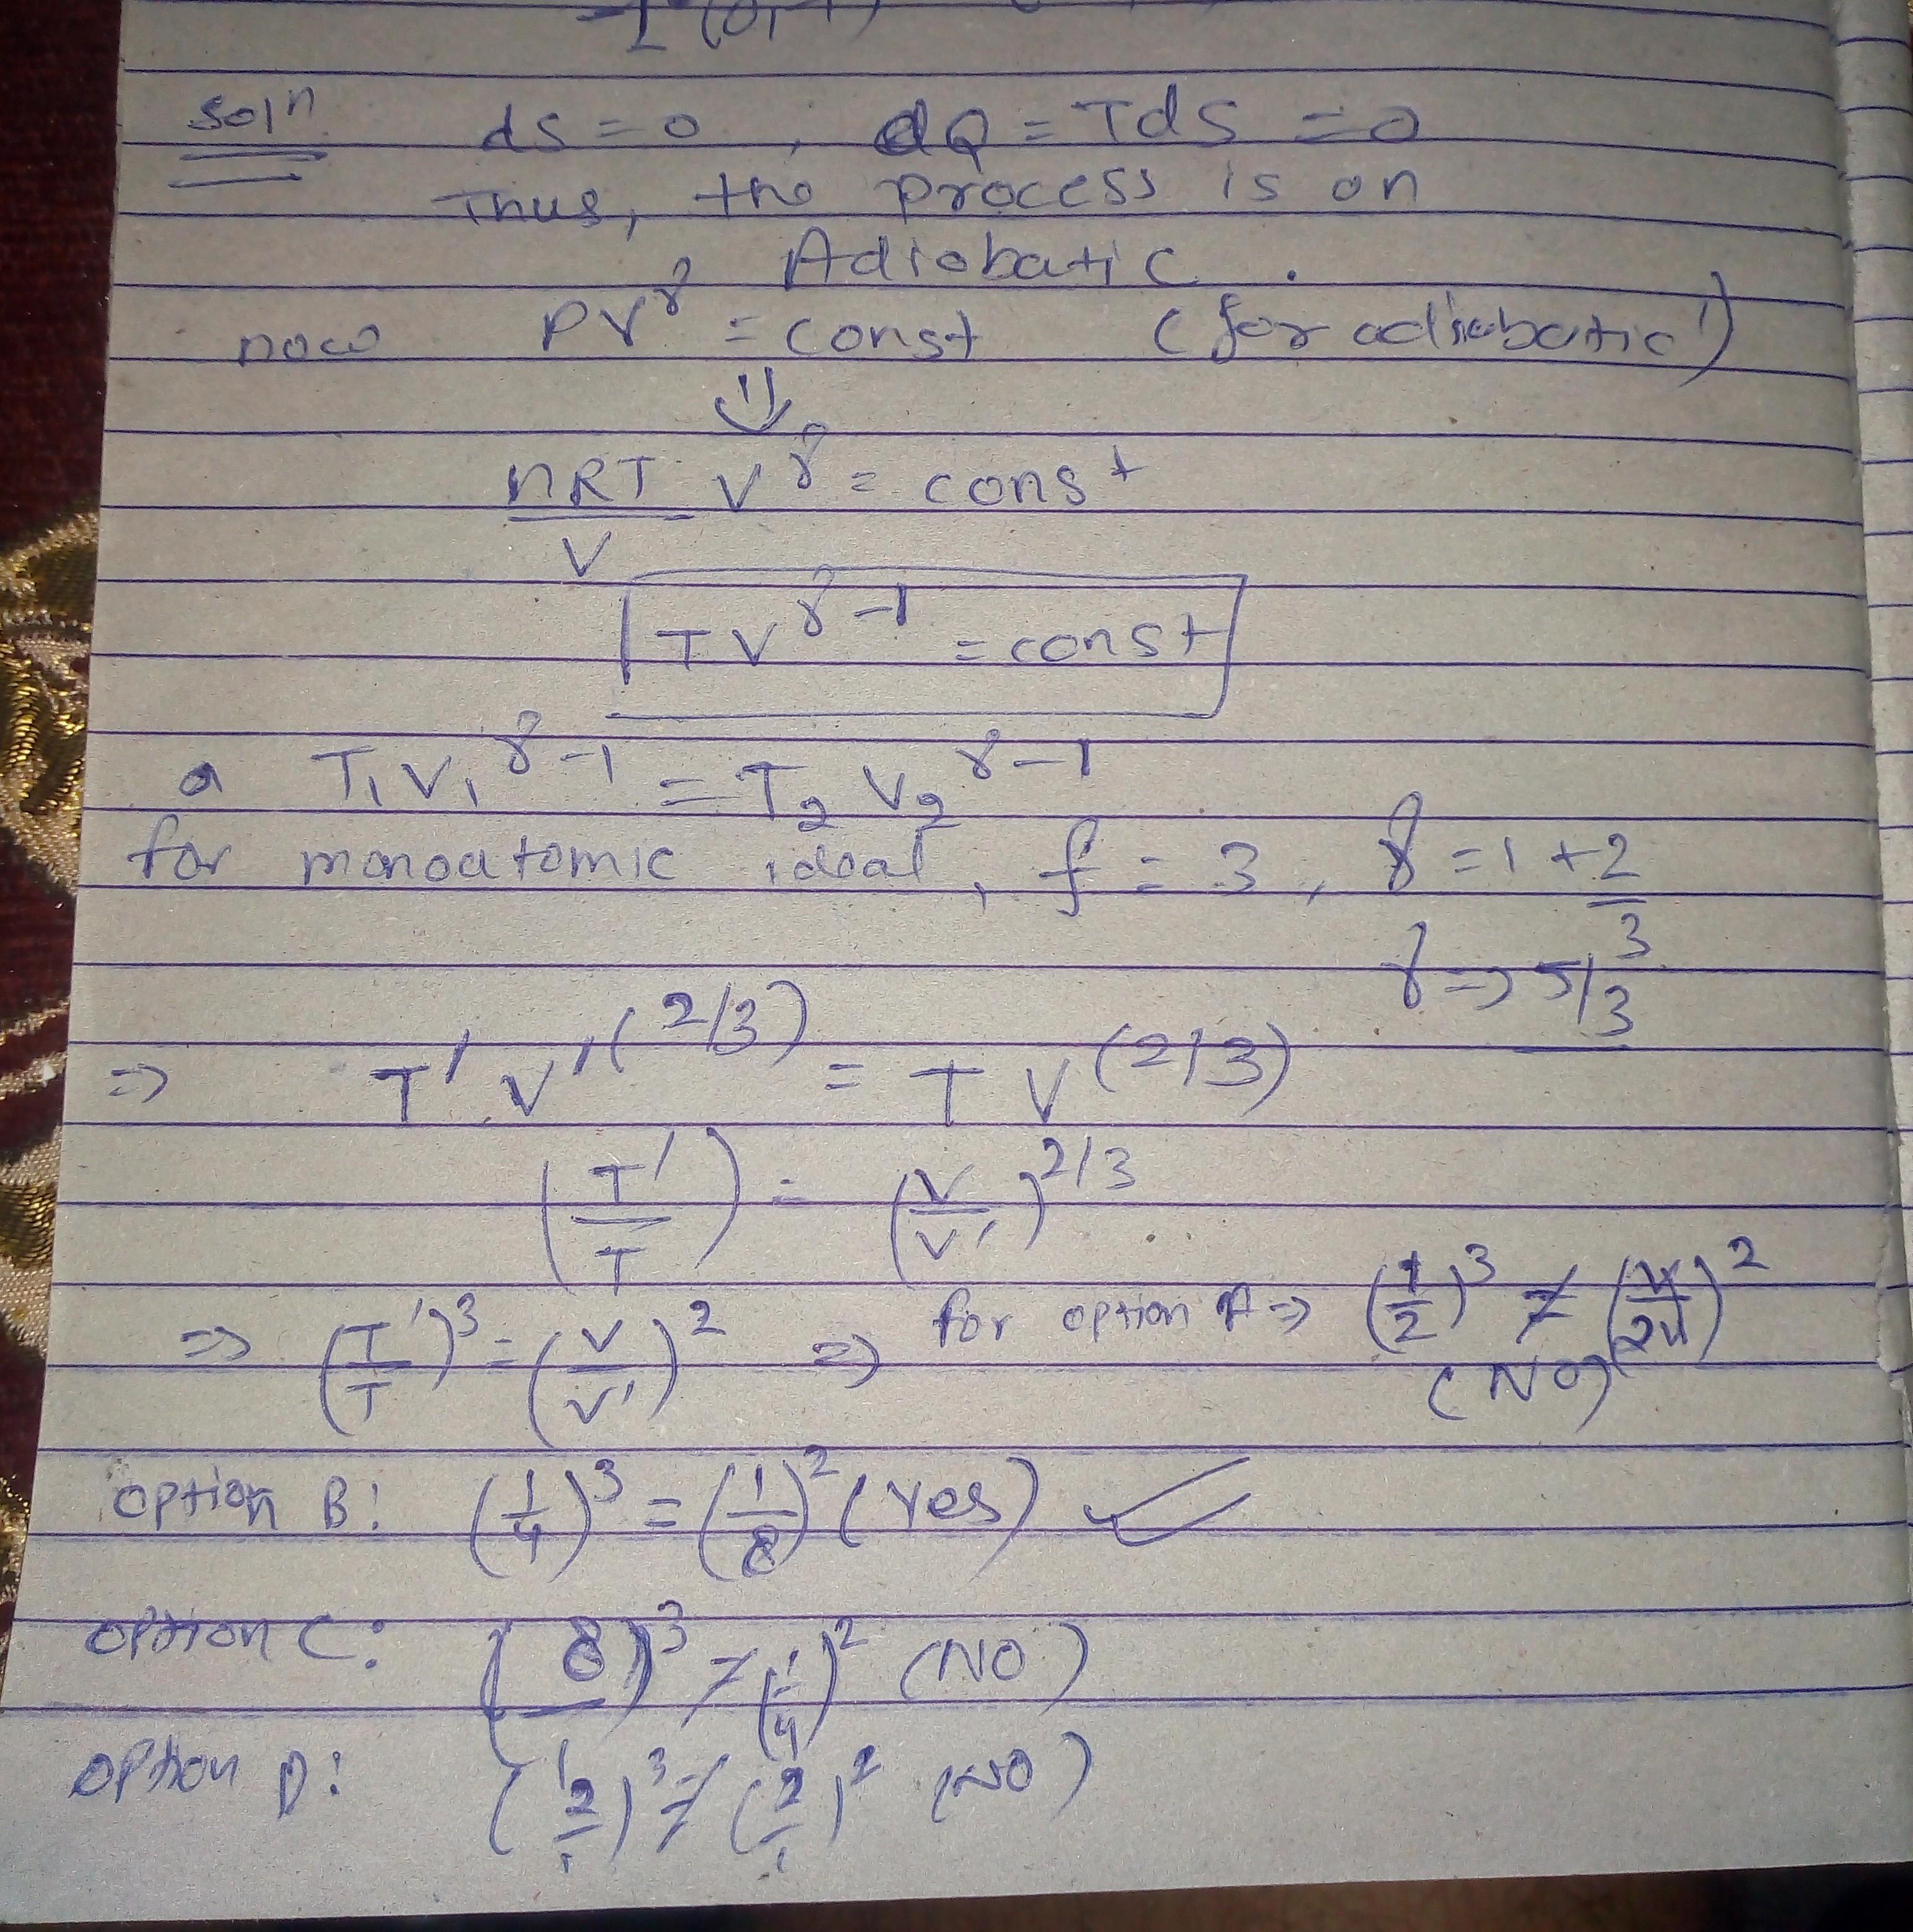 Soln ds = 0 , dQ = Tds = 0
Thus, the process is an
Adiabatic .
now PV^γ = const (for adiabatic)
⇓
nRT/V V^γ = const
TV^γ-1 = const
a T₁V₁^γ-1 = T₂V₂^γ-1
for monoatomic ideal, f = 3, γ = 1 + 2/3
γ => 5/3
=> T' V'^(2/3) = T V^(2/3)
(T'/T) = (V/V')^2/3
=> (T'/T)^3 = (V/V')^2 => for option A => (1/2)^3 ≠ (V/2V)^2
(NO)
option B: (1/4)^3 = (1/8)^2 (Yes) ✓
option C: (8)^3 ≠ (1/4)^2 (NO)
option D: (NO)